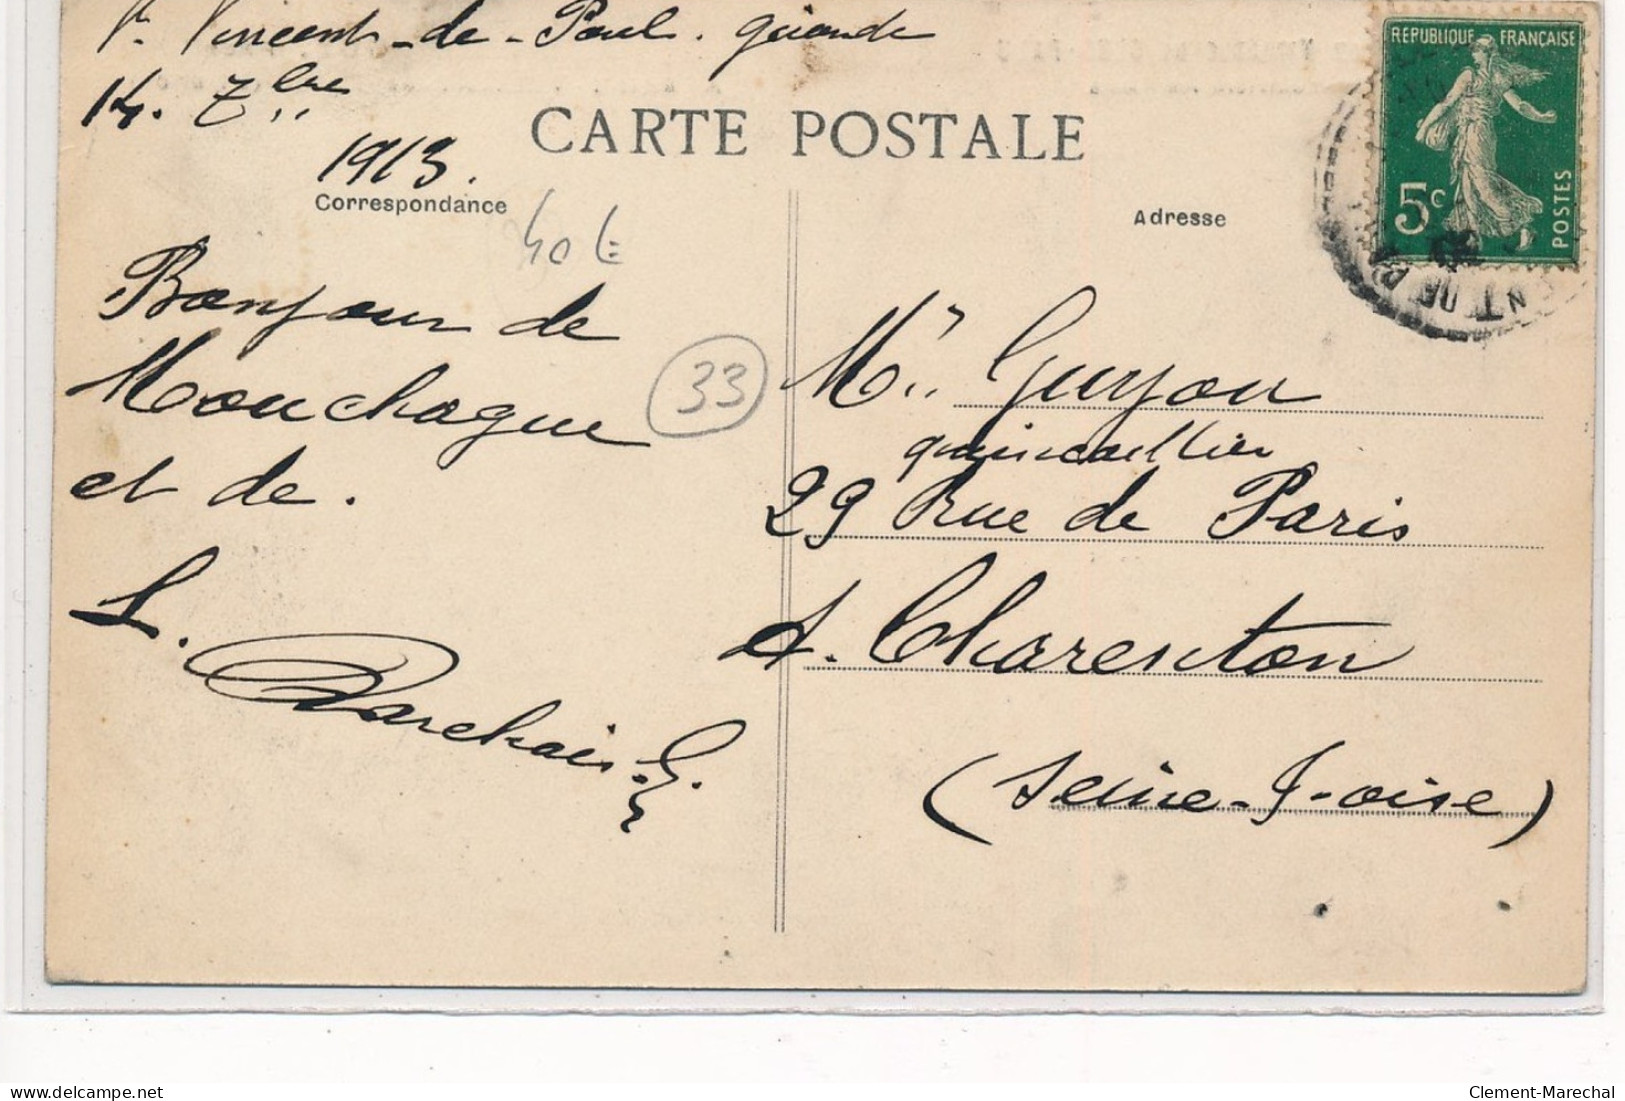 St Vincent-de-Paul. Gironde
14. 7bre
1913.
CARTE POSTALE
Correspondance
Adresse
REPUBLIQUE FRANÇAISE
5c
POSTES
NT DE PA
40 €
33
Bonjour de
Mouchague
et de.
L. Marchais
Mr Guyon
quincaillier
29 Rue de Paris
A. Charenton
(Seine-&-oise)
Clement-Marechal